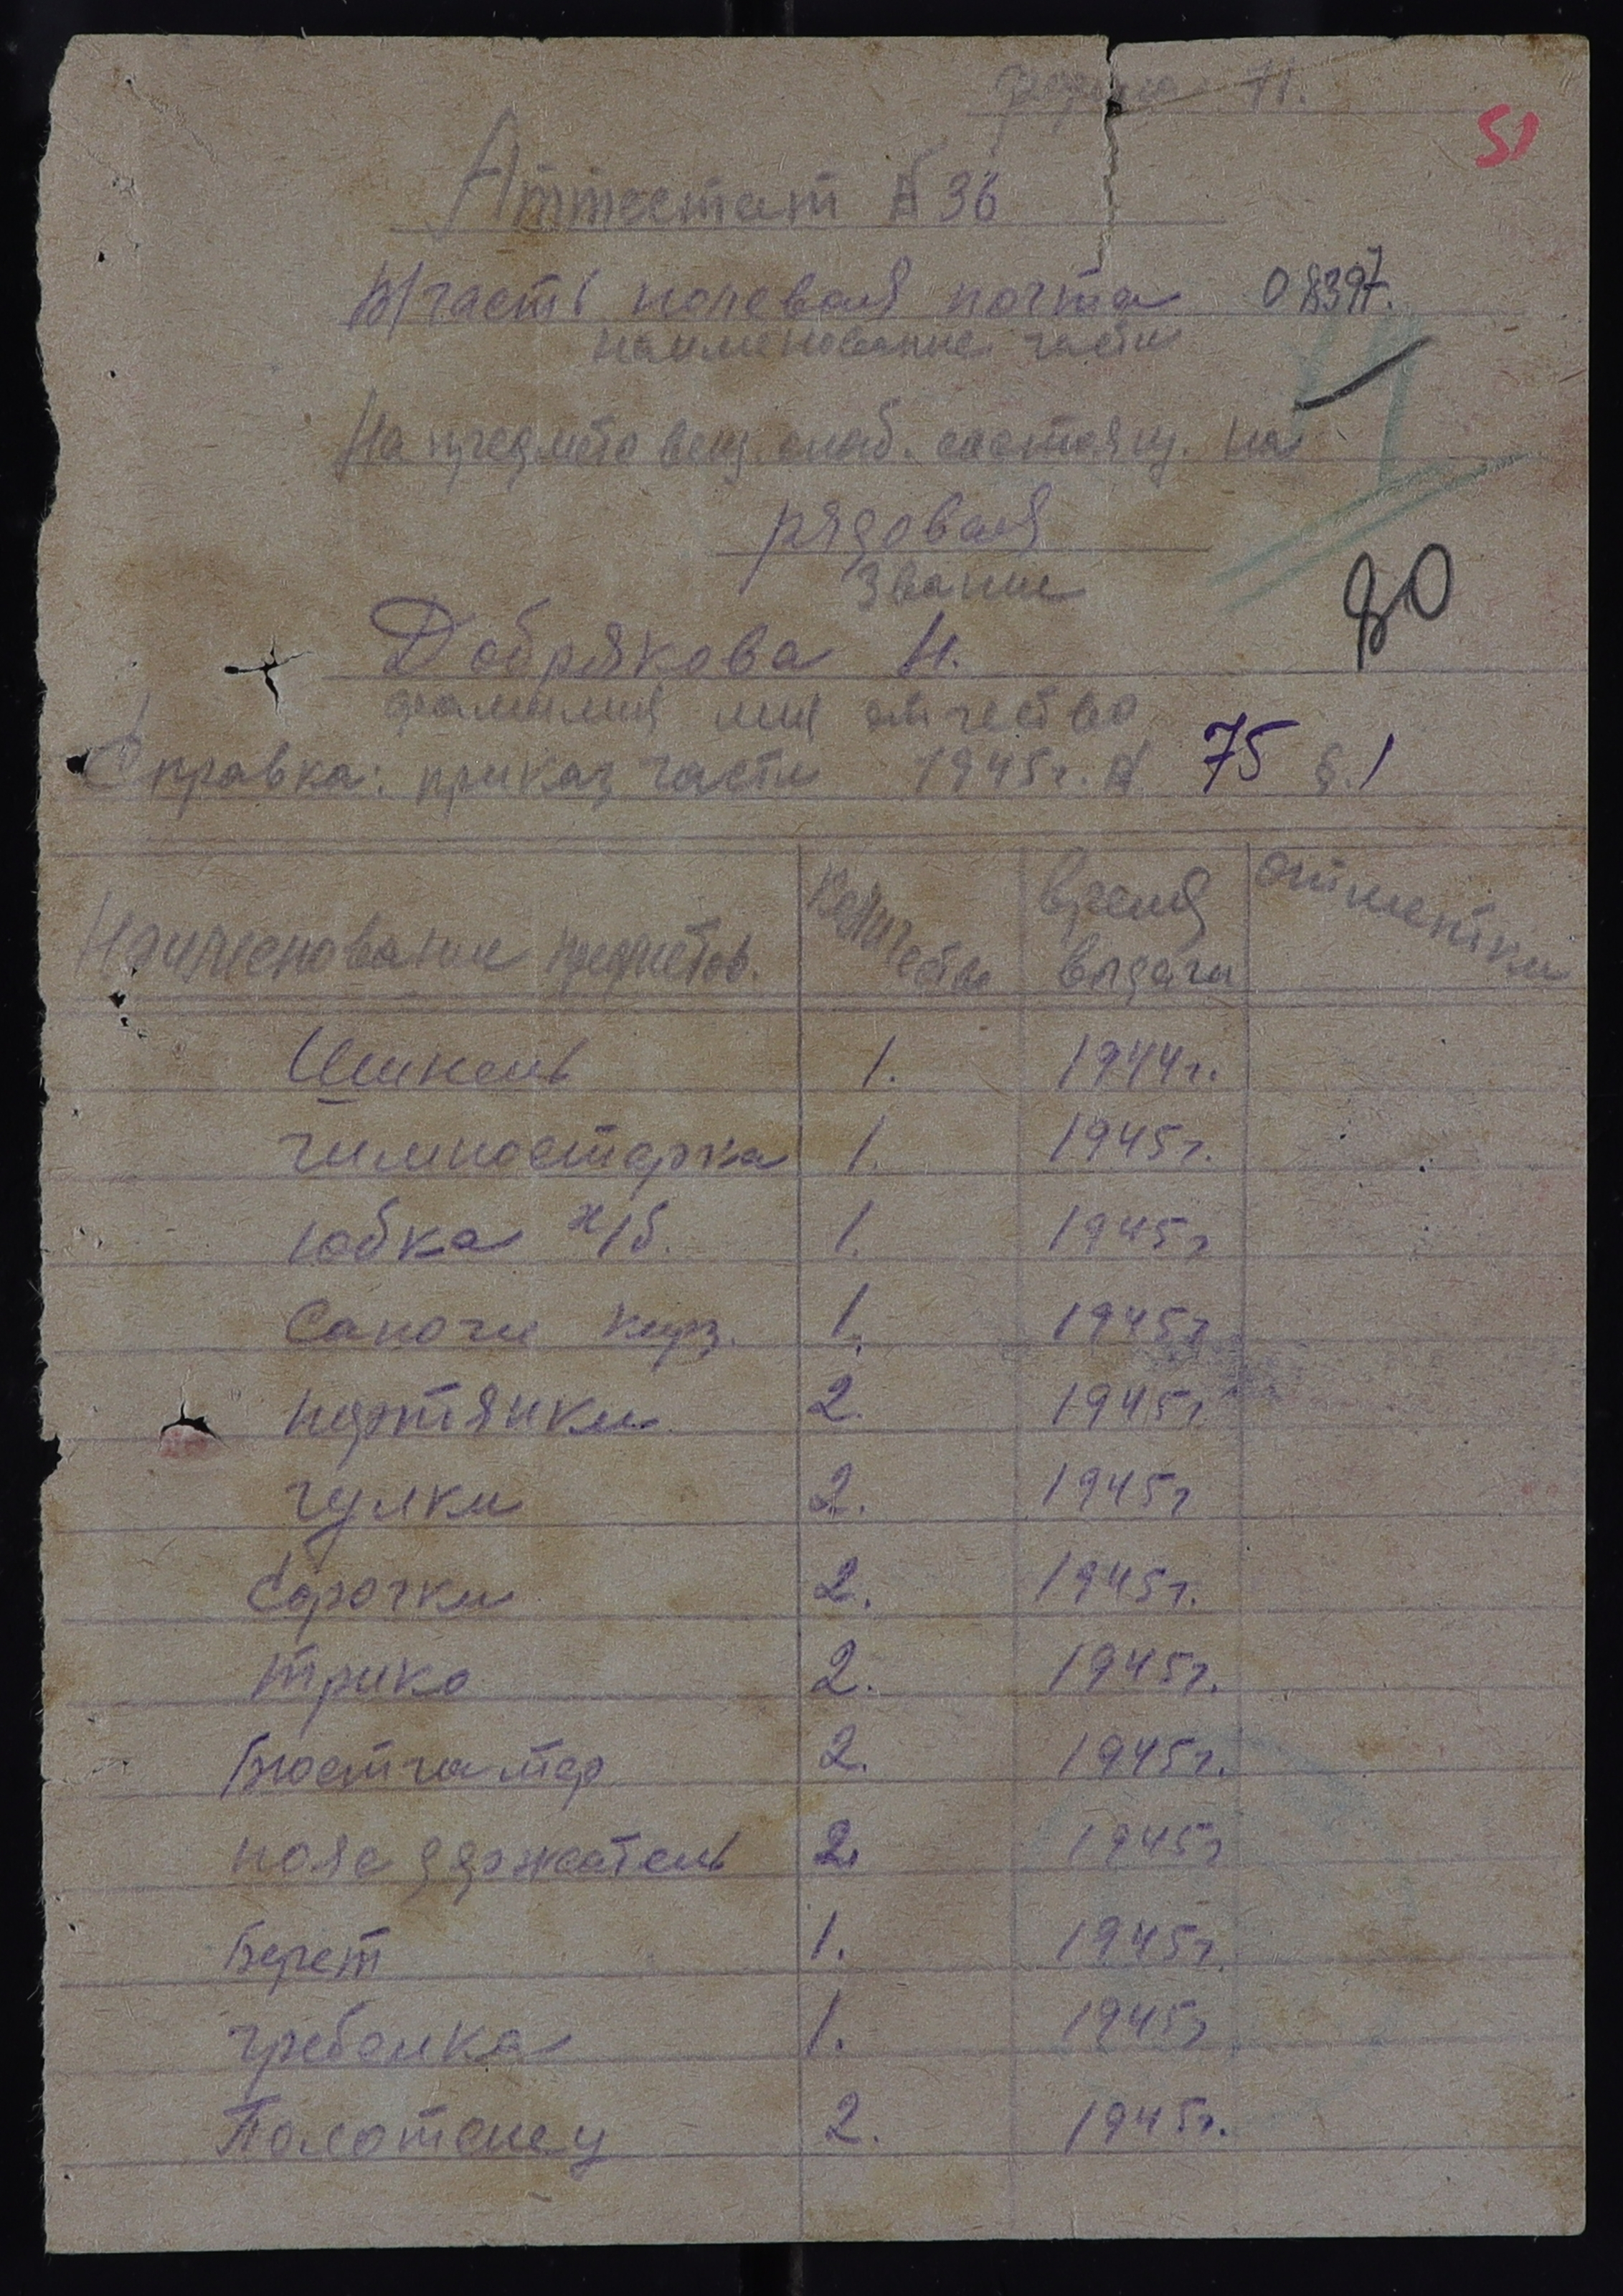 форма Н.
51
Аттестат № 36
В/часть полевая почта 08397.
наименование части
На предметы вещ. снаб. состоящ. на
рядовая
звание
80
Добрякова Н.
фамилия имя отчество
Справка: приказ части 1945г. № 75 §.1
Наименование предметов. Количество Время выдачи отметки
Шинель 1. 1944г.
гимностерка 1. 1945г.
юбка х/б. 1. 1945г
Сапоги кирз. 1. 1945г
портянки 2. 1945г
чулки 2. 1945г
Сорочки 2. 1945г.
трико 2. 1945г.
Бюстгатер 2. 1945г.
пояс держатель 2. 1945г
Берет 1. 1945г.
гребенка 1. 1945г
Полотенец 2. 1945г.